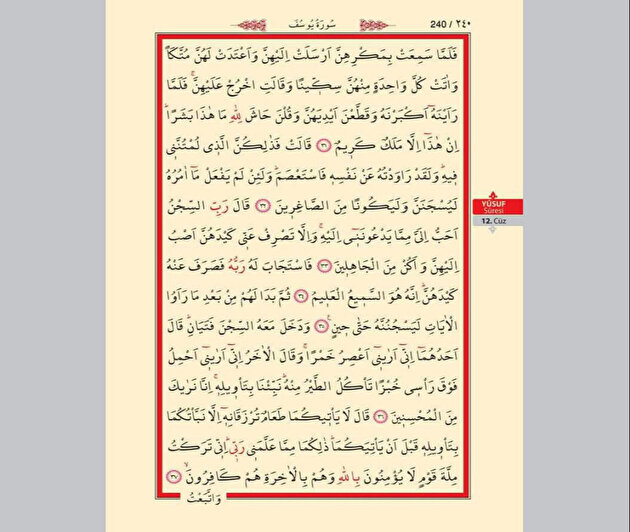 سُورَةُ يُوسُفَ
240 / ٢٤٠
فَلَمَّا سَمِعَتْ بِمَكْرِهِنَّ اَرْسَلَتْ اِلَيْهِنَّ وَاَعْتَدَتْ لَهُنَّ مُتَّكَـًٔا
وَاٰتَتْ كُلَّ وَاحِدَةٍ مِنْهُنَّ سِكّ۪ينًا وَقَالَتِ اخْرُجْ عَلَيْهِنَّۚ فَلَمَّا
رَاَيْنَهُٓ اَكْبَرْنَهُ وَقَطَّعْنَ اَيْدِيَهُنَّ وَقُلْنَ حَاشَ لِلّٰهِ مَا هٰذَا بَشَرًاۜ
اِنْ هٰذَٓا اِلَّا مَلَكٌ كَر۪يمٌ ﴿٣١﴾ قَالَتْ فَذٰلِكُنَّ الَّذ۪ي لُمْتُنَّن۪ي
ف۪يهِۜ وَلَقَدْ رَاوَدْتُهُ عَنْ نَفْسِه۪ فَاسْتَعْصَمَۜ وَلَئِنْ لَمْ يَفْعَلْ مَٓا اٰمُرُهُ
لَيُسْجَنَنَّ وَلَيَكُونًا مِنَ الصَّاغِر۪ينَ ﴿٣٢﴾ قَالَ رَبِّ السِّجْنُ
اَحَبُّ اِلَيَّ مِمَّا يَدْعُونَن۪ٓي اِلَيْهِۚ وَاِلَّا تَصْرِفْ عَنّ۪ي كَيْدَهُنَّ اَصْبُ
اِلَيْهِنَّ وَاَكُنْ مِنَ الْجَاهِل۪ينَ ﴿٣٣﴾ فَاسْتَجَابَ لَهُ رَبُّهُ فَصَرَفَ عَنْهُ
كَيْدَهُنَّۜ اِنَّهُ هُوَ السَّم۪يعُ الْعَل۪يمُ ﴿٣٤﴾ ثُمَّ بَدَا لَهُمْ مِنْ بَعْدِ مَا رَاَوُا
الْاٰيَاتِ لَيَسْجُنُنَّهُ حَتّٰى ح۪ينٍ۟ ﴿٣٥﴾ وَدَخَلَ مَعَهُ السِّجْنَ فَتَيَانِۜ قَالَ
اَحَدُهُمَٓا اِنّ۪ٓي اَرٰين۪ٓي اَعْصِرُ خَمْرًاۚ وَقَالَ الْاٰخَرُ اِنّ۪ٓي اَرٰين۪ٓي اَحْمِلُ
فَوْقَ رَأْس۪ي خُبْزًا تَأْكُلُ الطَّيْرُ مِنْهُۜ نَبِّئْنَا بِتَأْو۪يلِه۪ۚ اِنَّا نَرٰيكَ
مِنَ الْمُحْسِن۪ينَ ﴿٣٦﴾ قَالَ لَا يَأْت۪يكُمَا طَعَامٌ تُرْزَقَانِه۪ٓ اِلَّا نَبَّأْتُكُمَا
بِتَأْو۪يلِه۪ قَبْلَ اَنْ يَأْتِيَكُمَاۜ ذٰلِكُمَا مِمَّا عَلَّمَن۪ي رَبّ۪يۜ اِنّ۪ي تَرَكْتُ
مِلَّةَ قَوْمٍ لَا يُؤْمِنُونَ بِاللّٰهِ وَهُمْ بِالْاٰخِرَةِ هُمْ كَافِرُونَۙ ﴿٣٧﴾
وَاتَّبَعْتُ
YÛSUF
Sûresi
12. Cüz